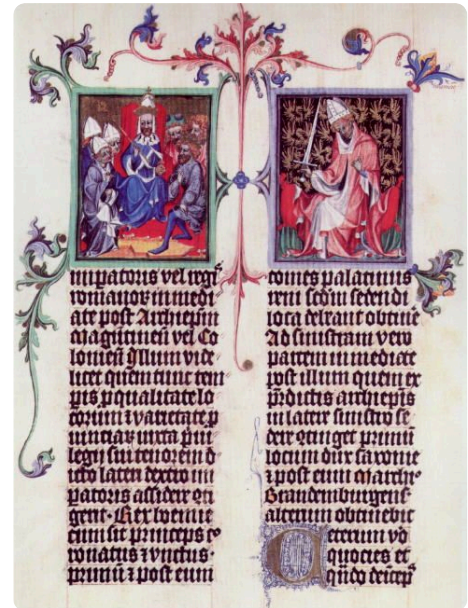 impatoris vel regꝭ
romanoꝝ in medi
ate post Archiepm̄
Maguntinen̄ vel Co
lonien̄ Illum vide
licet quem tunc tem
pis p qualitate lo
corum ⁊ varietate p
uinciaꝝ iuxta pui
legij sui tenorem d
icto latere dextro im
patoris assidere ꝯti
gerit. Rex boemie
cum sit princeps co
ronatus ⁊ vnctus.
primū ⁊ post eum
comes palatinus
reni scdm sedendi
loca debeant obtinē
Ad sinistram vero
partem immediate
post illum quem ex
p̄dictis archiepis
in latere sinistro se
dere ꝯtinget primū
locum dux saxonie
⁊ post eum Marchi
Brandemburgens̄
alterum obtinebit
Ceterum vo
quocies et
qn̄do deicep̄